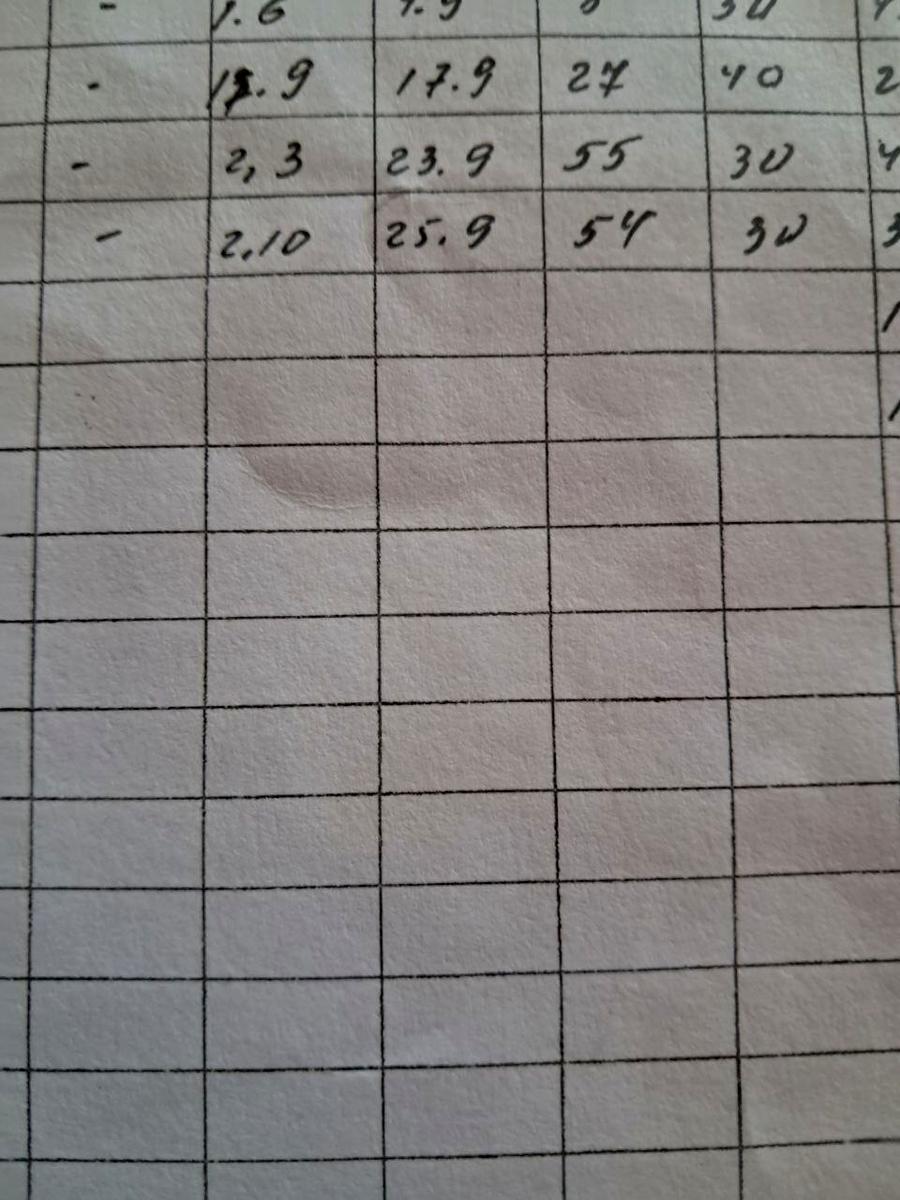 - 1.6 30
- 17.9 27 40 2
- 2,3 23.9 55 30 4
- 2.10 25.9 54 30 3
1
1